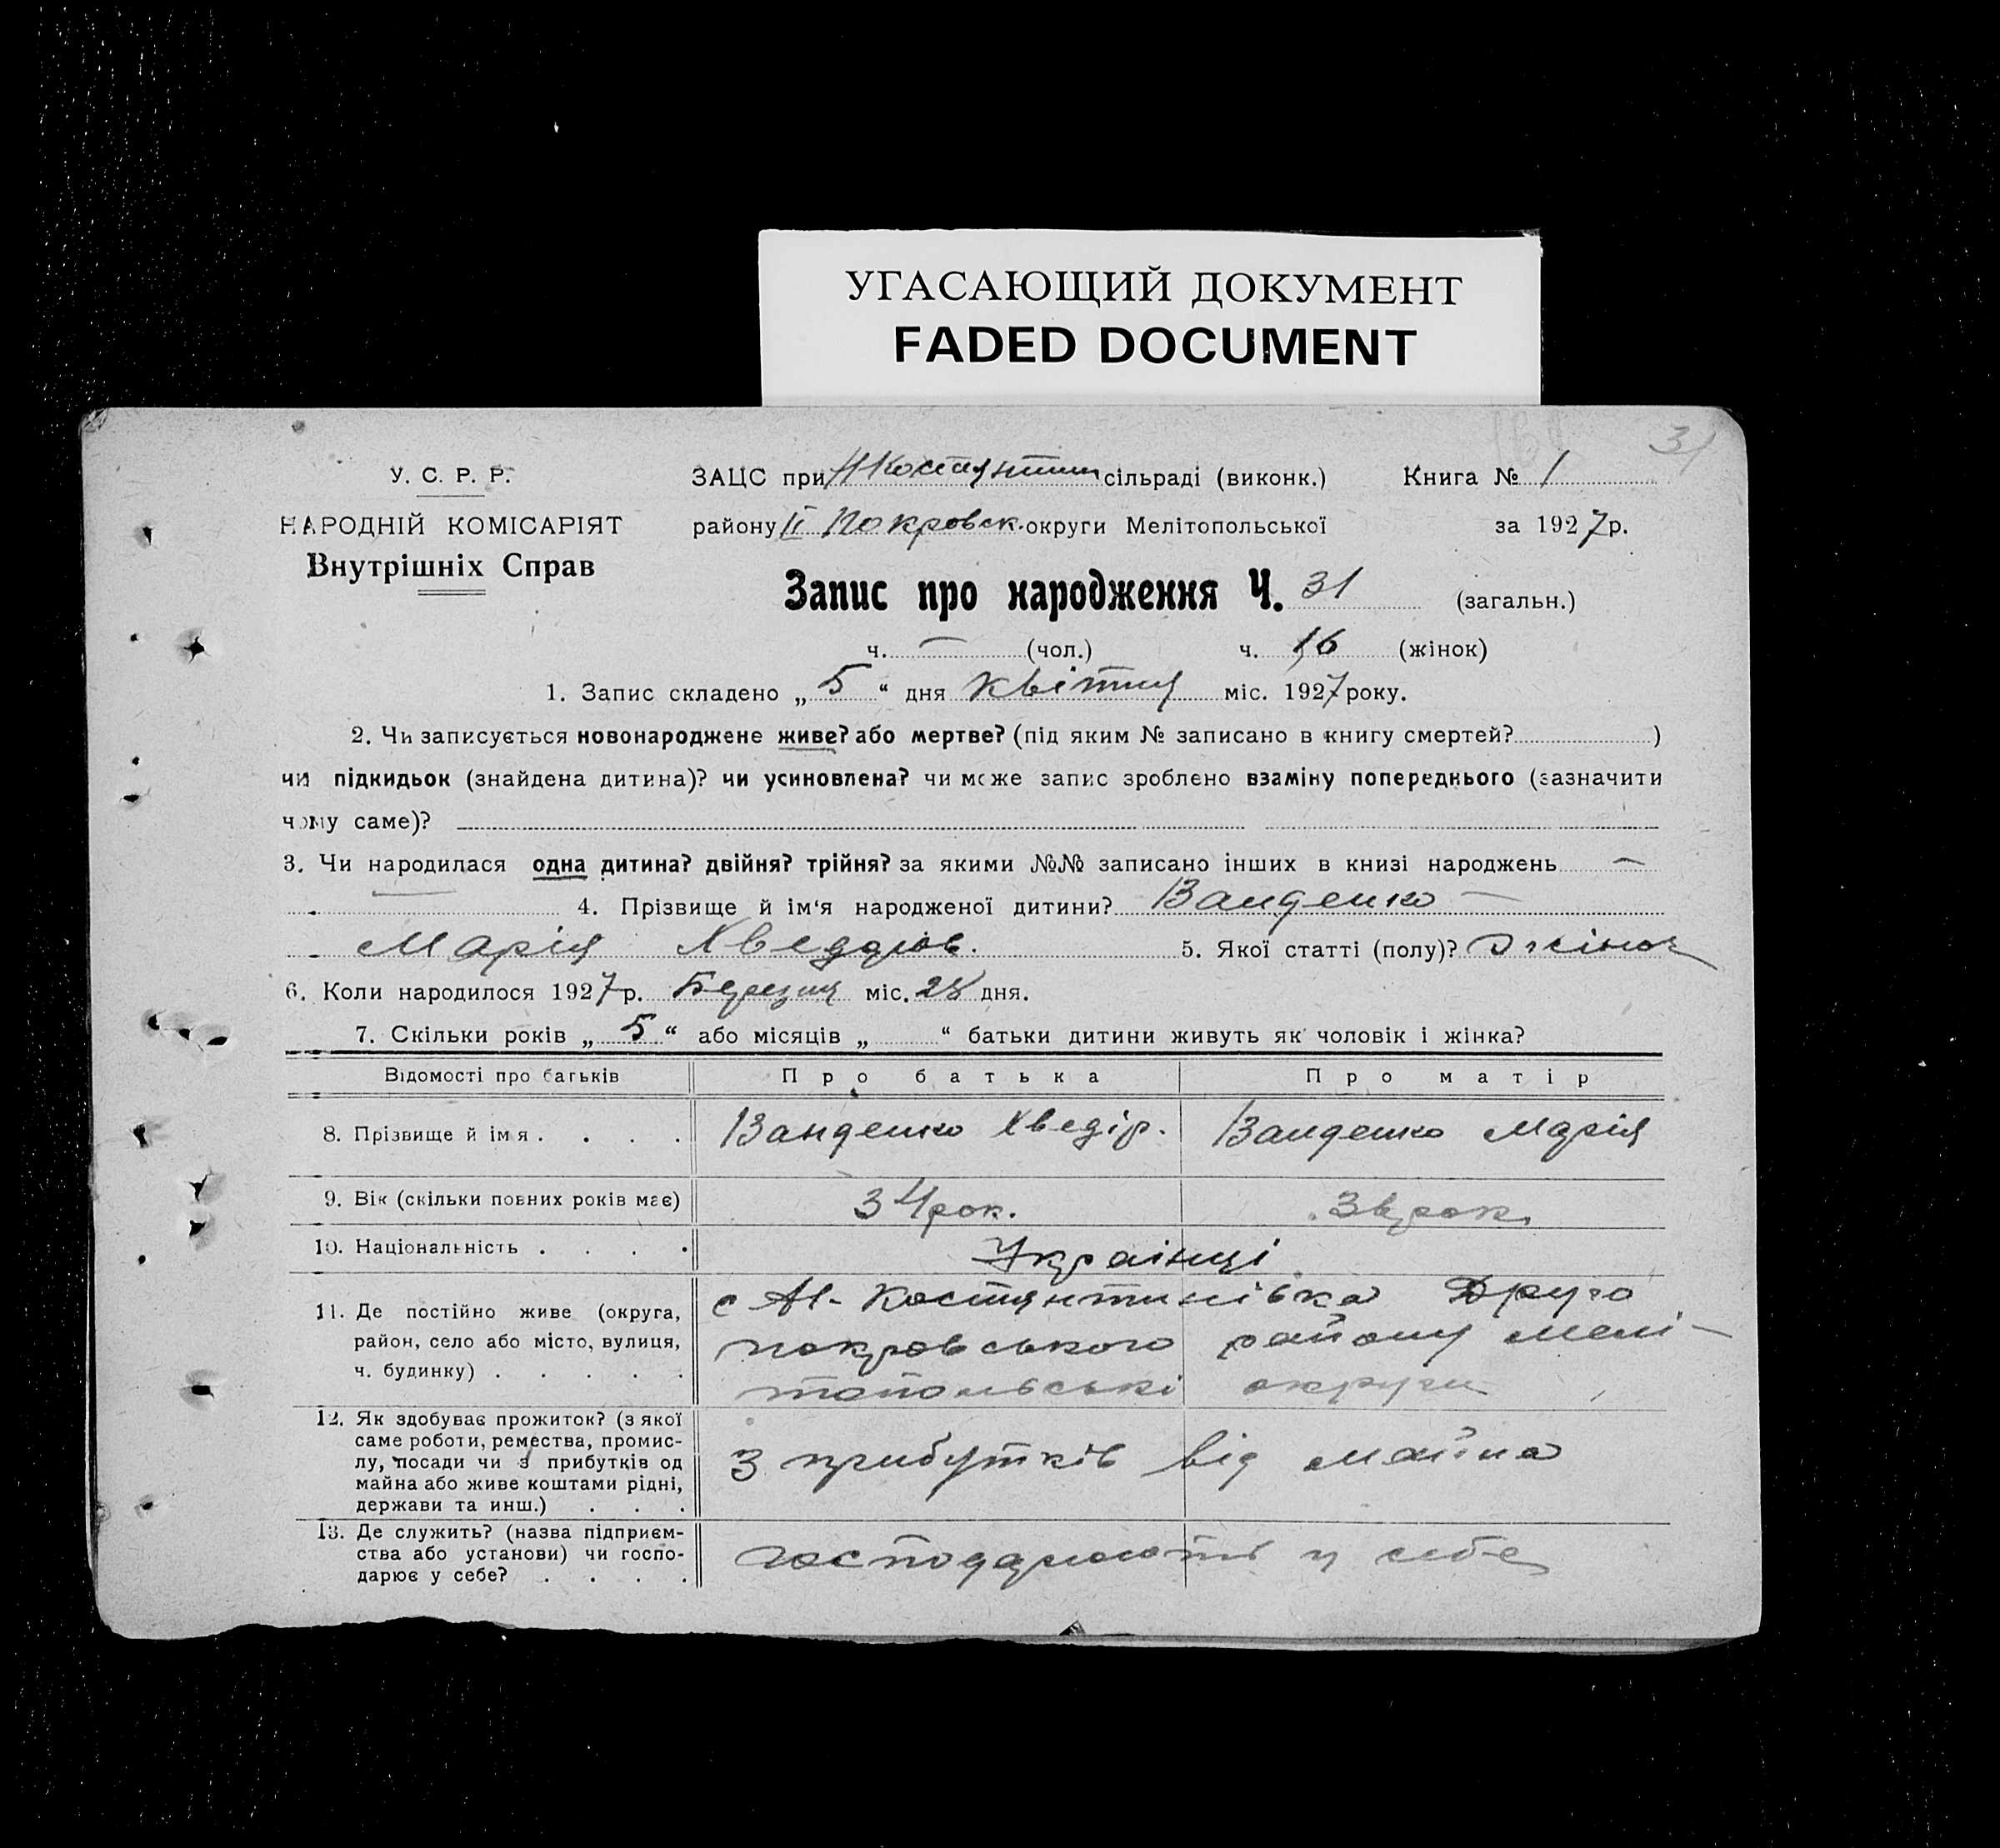 УГАСАЮЩИЙ ДОКУМЕНТ
FADED DOCUMENT
31
У. С. Р. Р.
НАРОДНІЙ КОМІСАРІЯТ
Внутрішніх Справ
ЗАЦС при НКостянтин сільраді (виконк.) Книга № 1
району ІІ Покровськ. округи Мелітопольської за 1927 р.
Запис про народження Ч. 31 (загальн.)
ч. — (чол.) ч. 16 (жінок)
1. Запис складено „ 5 “ дня квітня міс. 1927 року.
2. Чи записується новонароджене живе? або мертве? (під яким № записано в книгу смертей? )
чи підкидьок (знайдена дитина)? чи усиновлена? чи може запис зроблено взаміну попереднього (зазначити
чому саме)?
3. Чи народилася одна дитина? двійня? трійня? за якими №№ записано інших в книзі народжень —
4. Прізвище й ім‘я народженої дитини? Ванденко —
Марія Хведдров. 5. Якої статті (полу)? жіноч
6. Коли народилося 1927 р. Березня міс. 28 дня.
7. Скільки років „ 5 “ або місяців „ “ батьки дитини живуть як чоловік і жінка?
Відомості про батьків Про батька Про матір
8. Прізвище й імя . . . . Ванденко Хведір. Ванденко Марія
9. Вік (скільки повних років має) 34 рок. рок.
10. Національність . . . . Українці
11. Де постійно живе (округа, с Н-Костянтинівка Друго
район, село або місто, вулиця, покровського району Мелі-
ч. будинку) . . . . . топольські округи
12. Як здобуває прожиток? (з якої
саме роботи, ремества, промис-
лу, посади чи з прибутків од З прибутків від майна
майна або живе коштами рідні,
держави та инш.) . . .
13. Де служить? (назва підприєм-
ства або установи) чи госпо- господарюють у себе
дарює у себе? . . . .